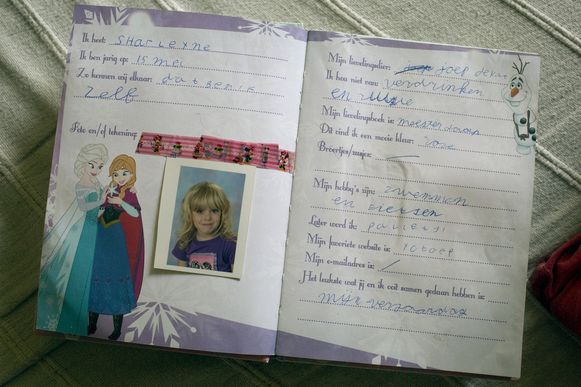 Ik heet: Sharlexne
Ik ben jarig op: 15 mei
Zo kennen wij elkaar: dat ben ik
Zelf
Foto en/of tekening:
Mijn lievelingsdier: joep
Ik hou niet van: verdrinken
en ruzie
Mijn lievelingsboek is: meester
Dit vind ik een mooie kleur: roze
Broertjes/zusjes:
Mijn hobby's zijn: zwemmen
en fietsen
Later word ik:
Mijn favoriete website is:
Mijn e-mailadres is: /
Het leukste wat jij en ik ooit samen gedaan hebben is:
mijn verjaardag